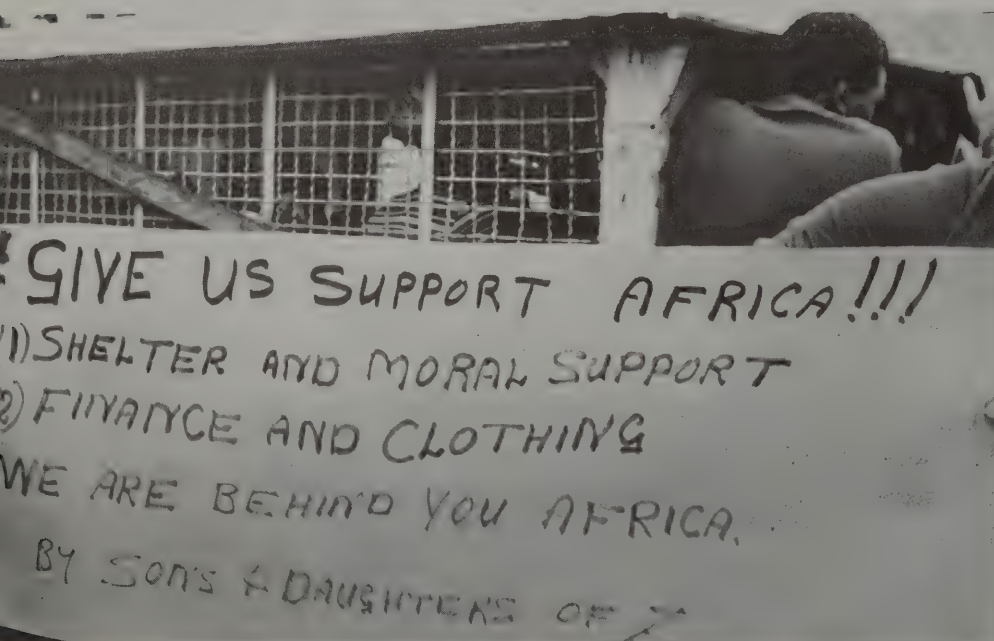 GIVE US SUPPORT AFRICA!!!
1) SHELTER AND MORAL SUPPORT
2) FINANCE AND CLOTHING
WE ARE BEHIND YOU AFRICA.
BY SON'S & DAUGHTERS OF